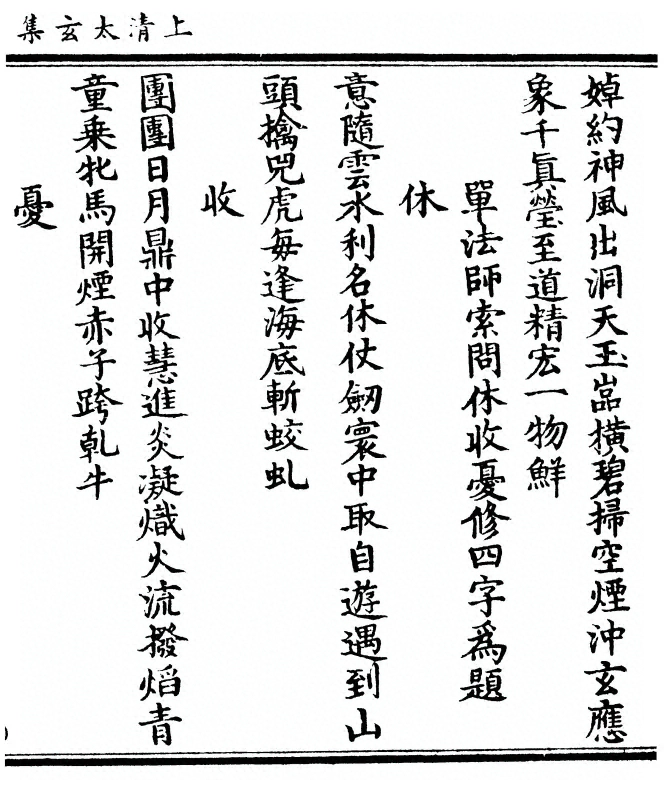 上清太玄集
婥約神風出洞天玉嵓橫碧掃空煙沖玄應
象千眞瑩至道精宏一物鮮
單法師索問休收憂修四字爲題
休
意隨雲水利名休仗劒寰中取自遊遇到山
頭擒兕虎每逢海底斬蛟虬
收
團團日月鼎中收慧進炎凝熾火流撥熖青
童乗牝馬開煙赤子跨乹牛
憂